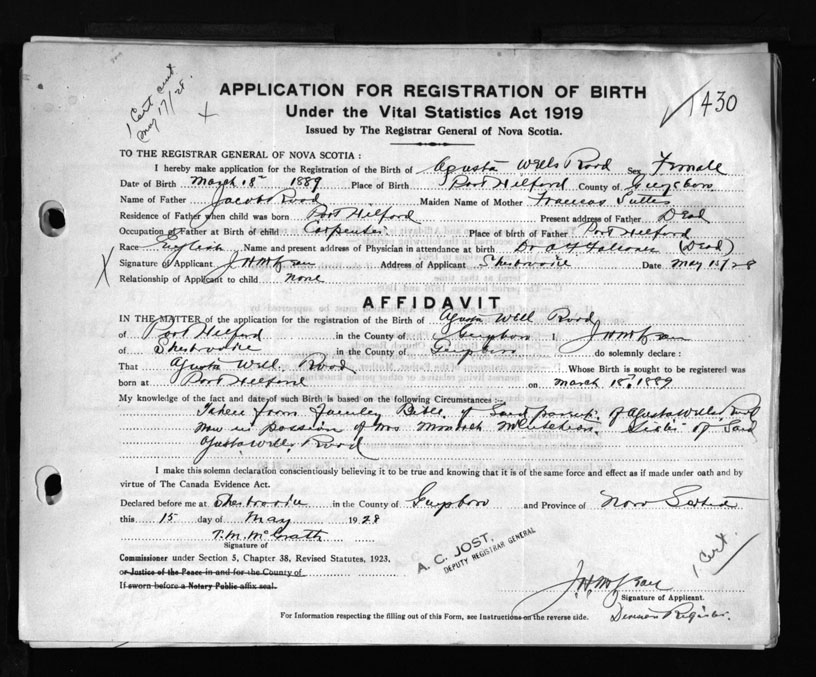 1 Cert cut
May 17/28
APPLICATION FOR REGISTRATION OF BIRTH
Under the Vital Statistics Act 1919
Issued by The Registrar General of Nova Scotia.
1430
TO THE REGISTRAR GENERAL OF NOVA SCOTIA :
I hereby make application for the Registration of the Birth of Agusta Wells Rood Sex Female
Date of Birth March 18" 1889 Place of Birth Port Hilford County of Guysboro
Name of Father Jacob Rood Maiden Name of Mother Frances
Residence of Father when child was born Port Hilford Present address of Father Dead
Occupation of Father at Birth of child Carpenter Place of birth of Father Port Hilford
Race English Name and present address of Physician in attendance at birth Dr (Dead)
Signature of Applicant Address of Applicant Sherbrooke Date May 15/28
Relationship of Applicant to child none
AFFIDAVIT
IN THE MATTER of the application for the registration of the Birth of Agusta Well Rood
of Port Hilford in the County of Guysboro I,
of Sherbrooke in the County of Guysboro do solemnly declare :
That Agusta Wells Rood Whose Birth is sought to be registered was
born at Port Hilford on March 18", 1889
My knowledge of the fact and date of such Birth is based on the following Circumstances :-
Taken from Family Bible of Said parents of Agusta Wells Rood
now in possession of Mrs Sister of Said
Agusta Wells Rood
I make this solemn declaration conscientiously believing it to be true and knowing that it is of the same force and effect as if made under oath and by
virtue of The Canada Evidence Act.
Declared before me at Sherbrooke in the County of Guysboro and Province of Nova Scotia
this 15 day of May 1928
T. M. McGrath
Signature of
Commissioner under Section 5, Chapter 38, Revised Statutes, 1923,
or Justice of the Peace in and for the County of
If sworn before a Notary Public affix seal.
A. C. JOST,
DEPUTY REGISTRAR GENERAL
1 Cert.
Signature of Applicant.
Register.
For Information respecting the filling out of this Form, see Instructions on the reverse side.